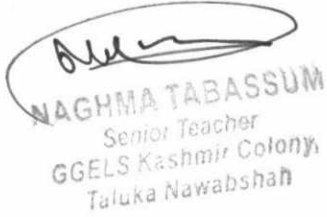 NAGHMA TABASSUM
Senior Teacher
GGELS Kashmir Colony,
Taluka Nawabshah